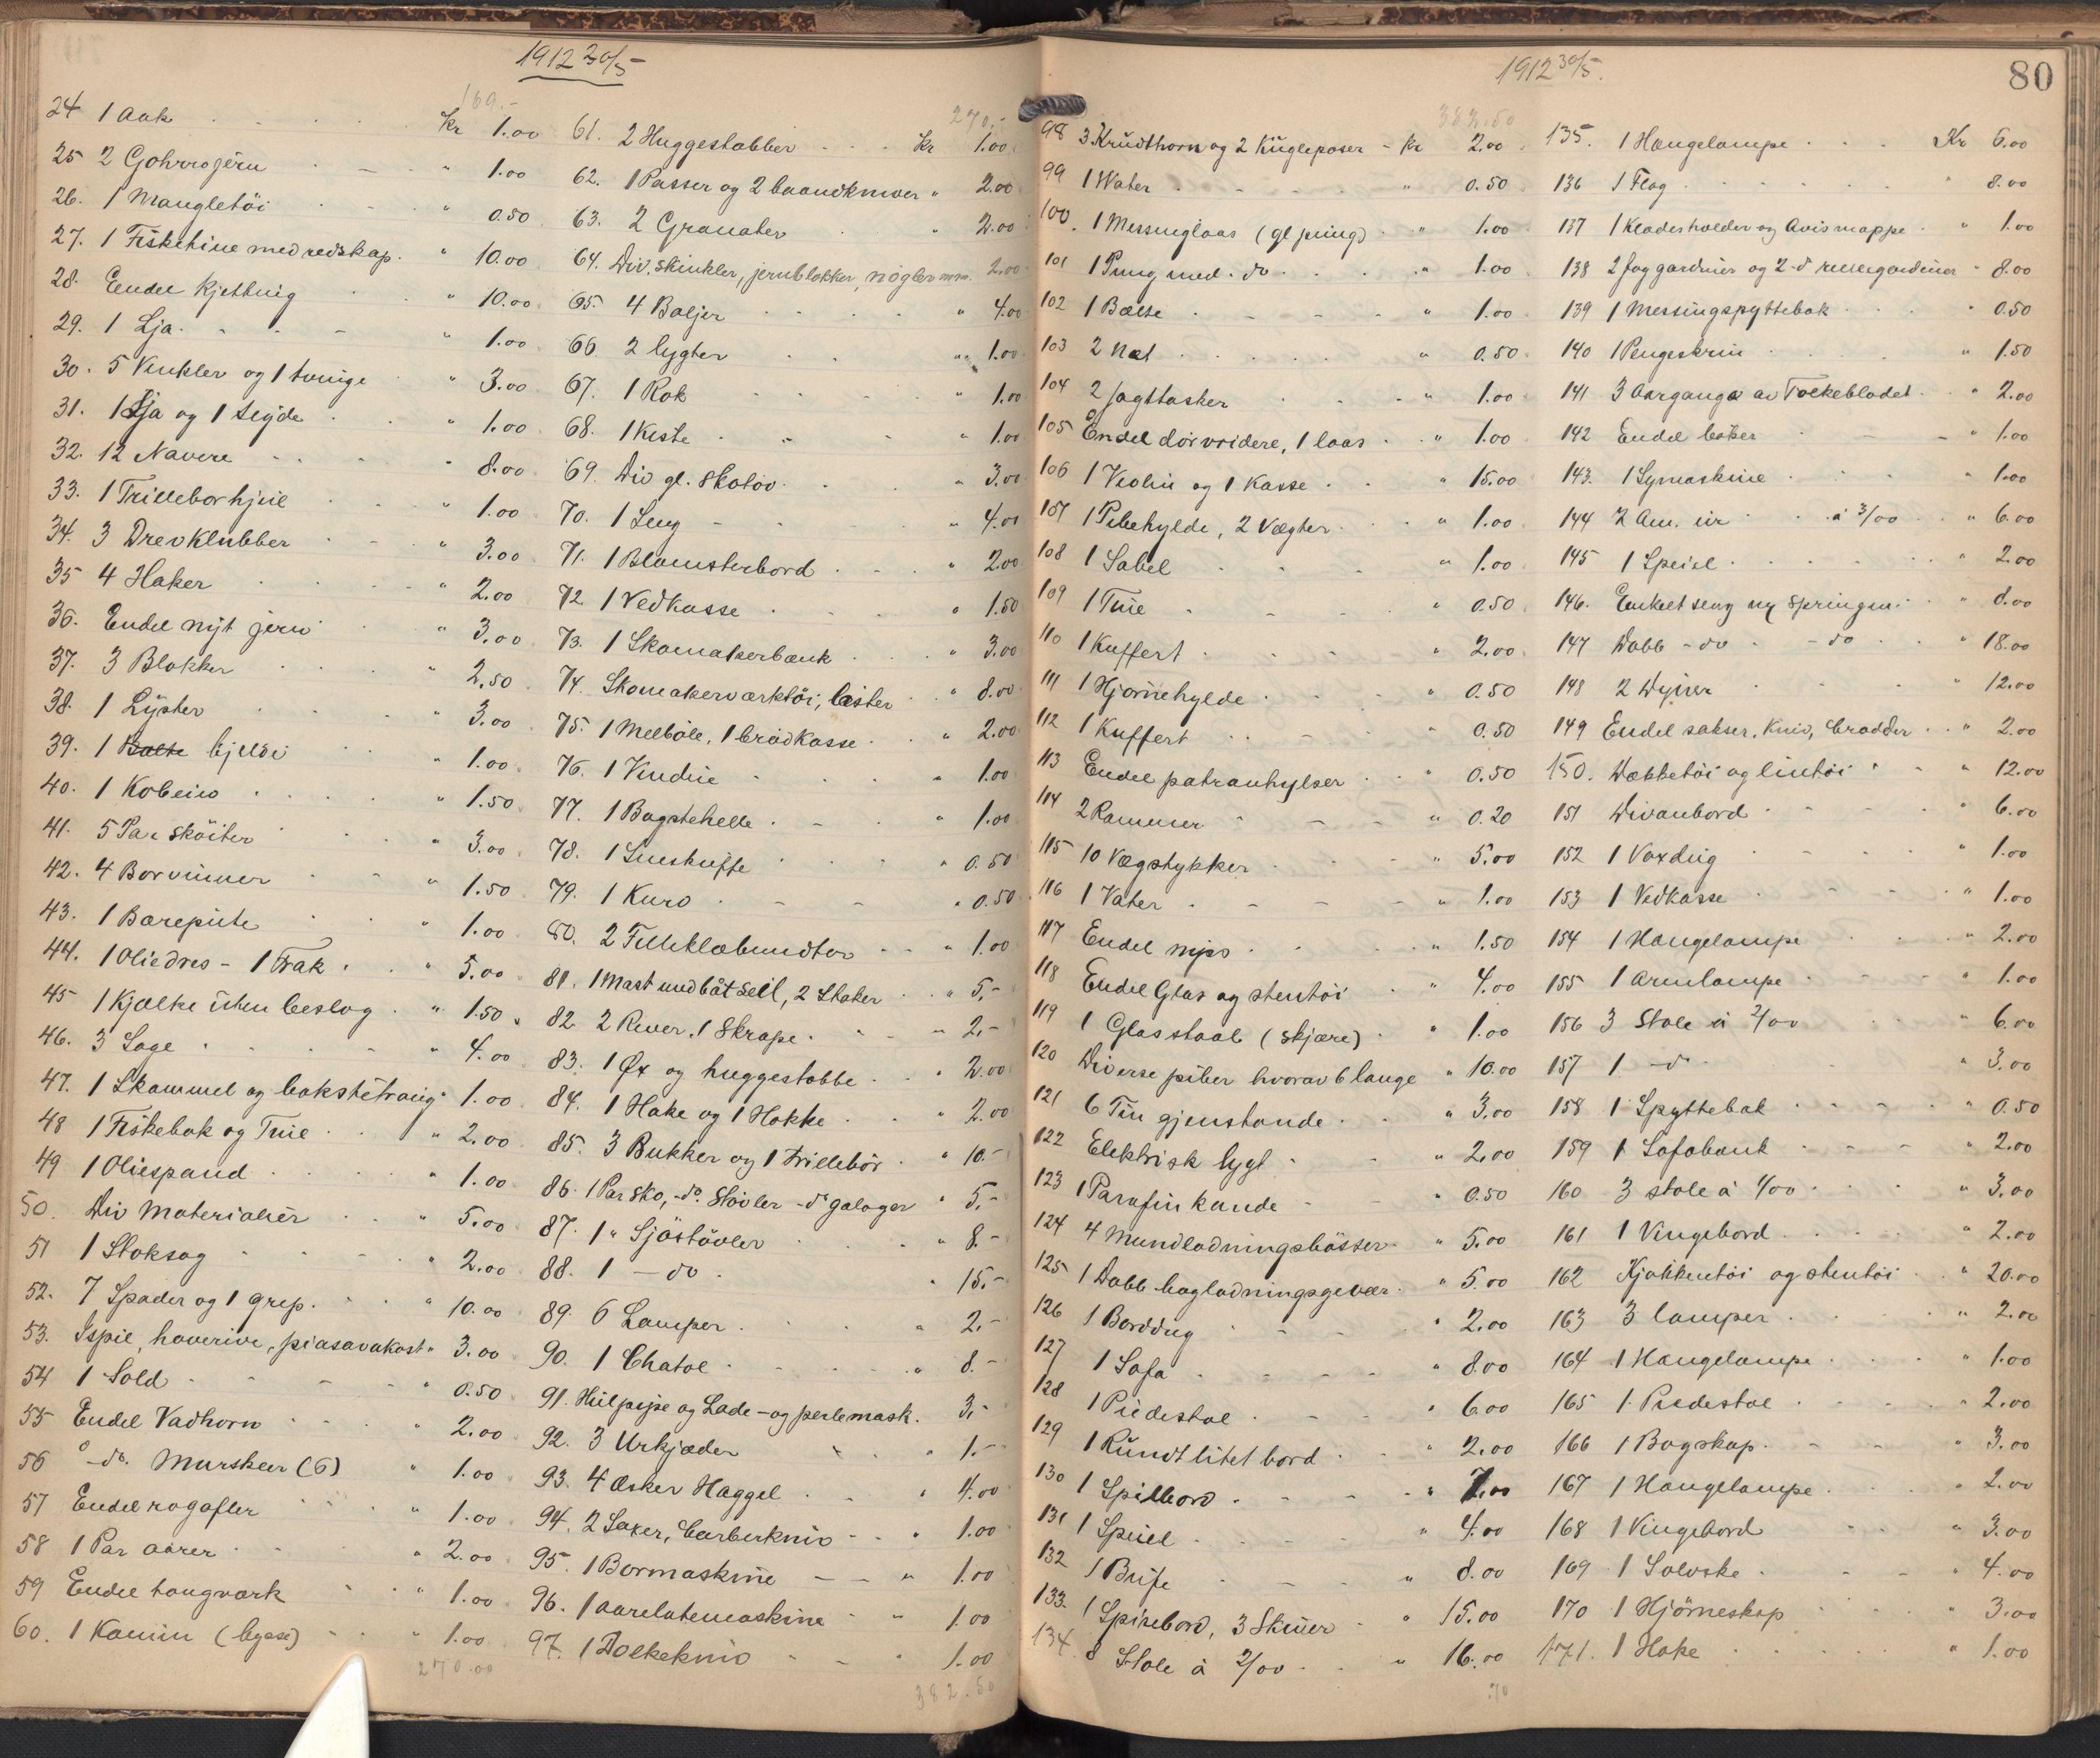 1912 30/5
169.-
24 1 Aak Kr 1.00
25 2 Gohvvojern " 1.00
26. 1 Mangletöi " 0.50
27. 1 Fiskekine med redskap. " 10.00
28. Endel Kjetting " 10.00
29. 1 Lja. " 1.00
30. 5 Vinkler og 1 tvinge " 3.00
31. 1 Lja og 1 Segde " 1.00
32. 12 Navere " 8.00
33. 1 Trilleborhjul " 1.00
34. 3 Drevklubber " 3.00
35 4 Haker " 2.00
36. Endel nyt jern " 3.00
37. 3 Blokker " 2.50
38. 1 Lyster " 3.00
39. 1 Balte bjelde " 1.00
40. 1 Kobein " 1.50
41. 5 Par Sköiter " 3.00
42. 4 Borvinner " 1.50
43. 1 Barepute " 1.00
44. 1 Oliedres - 1 Frak " 5.00
45 1 Kjælke uten beslag " 1.50
46. 3 Sage " 4.00
47. 1 Skammel og bakstetraug " 1.00
48 1 Fiskebak og Tine " 2.00
49 1 Oliespand " 1.00
50. Div Materialier " 5.00
51 1 Stoksag " 2.00
52. 7 Spader og 1 grep. " 10.00
53. Ispil, haverive, piasavakost " 3.00
54 1 Sold " 0.50
55 Endel Vadhorn " 2.00
56 -do. Murskeer (6) " 1.00
57 Endel ragafler " 1.00
58 1 Par aarer " 2.00
59 Endel tougværk " 1.00
60. 1 Kamin (bysse) " 1.00
270.00
270.-
61. 2 Huggestabber Kr 1.00
62. 1 Passer og 2 baandkniver " 2.00
63. 2 Granater " 2.00
64. Div. skinkler, jernblokker, nögler mm. 2.00
65. 4 Baljer " 4.00
66 2 lygter " 1.00
67. 1 Rok " 1.00
68. 1 Kiste " 1.00
69. Div gl. Skotöi " 3.00
70. 1 Seng " 4.00
71. 1 Blomsterbord " 2.00
72. 1 Vedkasse " 1.50
73. 1 Skomakerbænk " 3.00
74. Skomakerværktöi, læster " 8.00
75. 1 Melböle, 1 brödkasse " 2.00
76. 1 Vindue " 1.00
77. 1 Bagstehelle " 1.00
78. 1 Snuskuffe " 0.50
79. 1 Kurv " 0.50
80. 2 Filleklæbundter " 1.00
81. 1 Mast med båt seil, 2 Staker " 5,-
82. 2 River, 1 Skrape " 2.-
83. 1 Øx og huggestabbe " 2.00
84. 1 Hake og 1 Hakke " 2.00
85. 3 Bukker og 1 trillebör " 10.-
86. 1 Par Sko, -do. Stövler -do galoger " 5,-
87. 1 " Sjöstövler " 8.-
88. 1 - do " 15.-
89. 6 Lamper " 2.-
90. 1 Chatol " 8.-
91. Hulpipe og Lade- og perlemask. 3,-
92. 3 Urkjæder " 1.-
93. 4 Æsker Haggel " 4.00
94. 2 Saxer, barberkniv " 1.00
95. 1 Bormaskine " 1.00
96. 1 aareladmaskine " 1.00
97. 1 Dolkekniv " 1.00
382.50
1912 30/5.
80
382.50
98 3 Krudthorn og 2 Kugleposer - Kr 2.00
99 1 Vater " 0.50
100. 1 Messinglaas (gl pung) " 1.00
101 1 Pung med. do " 1.00
102 1 Bælte " 1.00
103 2 Næt " 0.50
104 2 Jagttasker " 1.00
105 Endel dörvridere, 1 laas " 1.00
106 1 Violin og 1 Kasse " 15.00
107 1 Pibehylde, 2 Vægter " 1.00
108 1 Sabel " 1.00
109 1 Tine " 0.50
110 1 Kuffert " 2.00
111 1 Hjörnehylde " 0.50
112 1 Kuffert " 0.50
113 Endel patronhylser " 0.50
114 2 Rammer " 0.20
115 10 Vægstykker " 5.00
116 1 Vater " 1.00
117 Endel nips " 1.50
118 Endel Glas og stentöi " 4.00
119 1 Glasstaal (skjære) " 1.00
120 Diverse piber hvorav 6 lange " 10.00
121 6 Tin gjenstande " 3.00
122 Elektrisk lygt " 2.00
123 1 Parafin kande " 0.50
124 4 Mundladningsbösser " 5.00
125 1 Dobb bagladningsgevær " 5.00
126 1 Borddug " 2.00
127 1 Sofa " 8.00
128 1 Piedestal " 6.00
129 1 Rundt litet bord " 2.00
130 1 Spilbord " 7.00
131 1 Speil " 4.00
132 1 Buffe " 8.00
133. 1 Spisebord, 3 Skuver " 15.00
134 8 Stole à 2/00 " 16.00
70
135. 1 Hængelampe Kr 6.00
136 1 Flag " 8.00
137 1 Kladesholder og Avismappe " 1.00
138 2 fag gardiner og 2-d rullegardiner " 8.00
139 1 Messingspyttebak " 0.50
140 1 Pengeskrin " 1.50
141 3 Aargange av Folkebladet " 2.00
142 Endel böker " 1.00
143. 1 Symaskine " 1.00
144 2 Am. ur á 3/00 " 6.00
145 1 Speil " 2.00
146. Enkelt seng ny Springm. " 8.00
147 Dobb - do - do " 18.00
148 2 Dyner " 12.00
149 Endel sakser, Kniv, brodder " 2.00
150. Dækketöi og lintöi " 12.00
151 Divanbord " 6.00
152 1 Voxdug " 1.00
153 1 Vedkasse " 1.00
154 1 Hængelampe " 2.00
155 1 Armlampe " 1.00
156 3 Stole á 2/00 " 6.00
157 1 -d " 3.00
158 1 Spyttebak " 0.50
159 1 Sofabænk " 2.00
160 3 stole á 1/00 " 3.00
161 1 Vingebord " 2.00
162 Kjökkentöi og stentöi " 20.00
163 3 lamper " 2.00
164 1 Hængelampe " 1.00
165 1 Piedestal " 2.00
166 1 Bogskap. " 3.00
167 1 Hængelampe " 2.00
168 1 Vingebord " 3.00
169 1 Sölvske " 4.00
170 1 Hjörneskap " 3.00
171. 1 Hake " 1.00